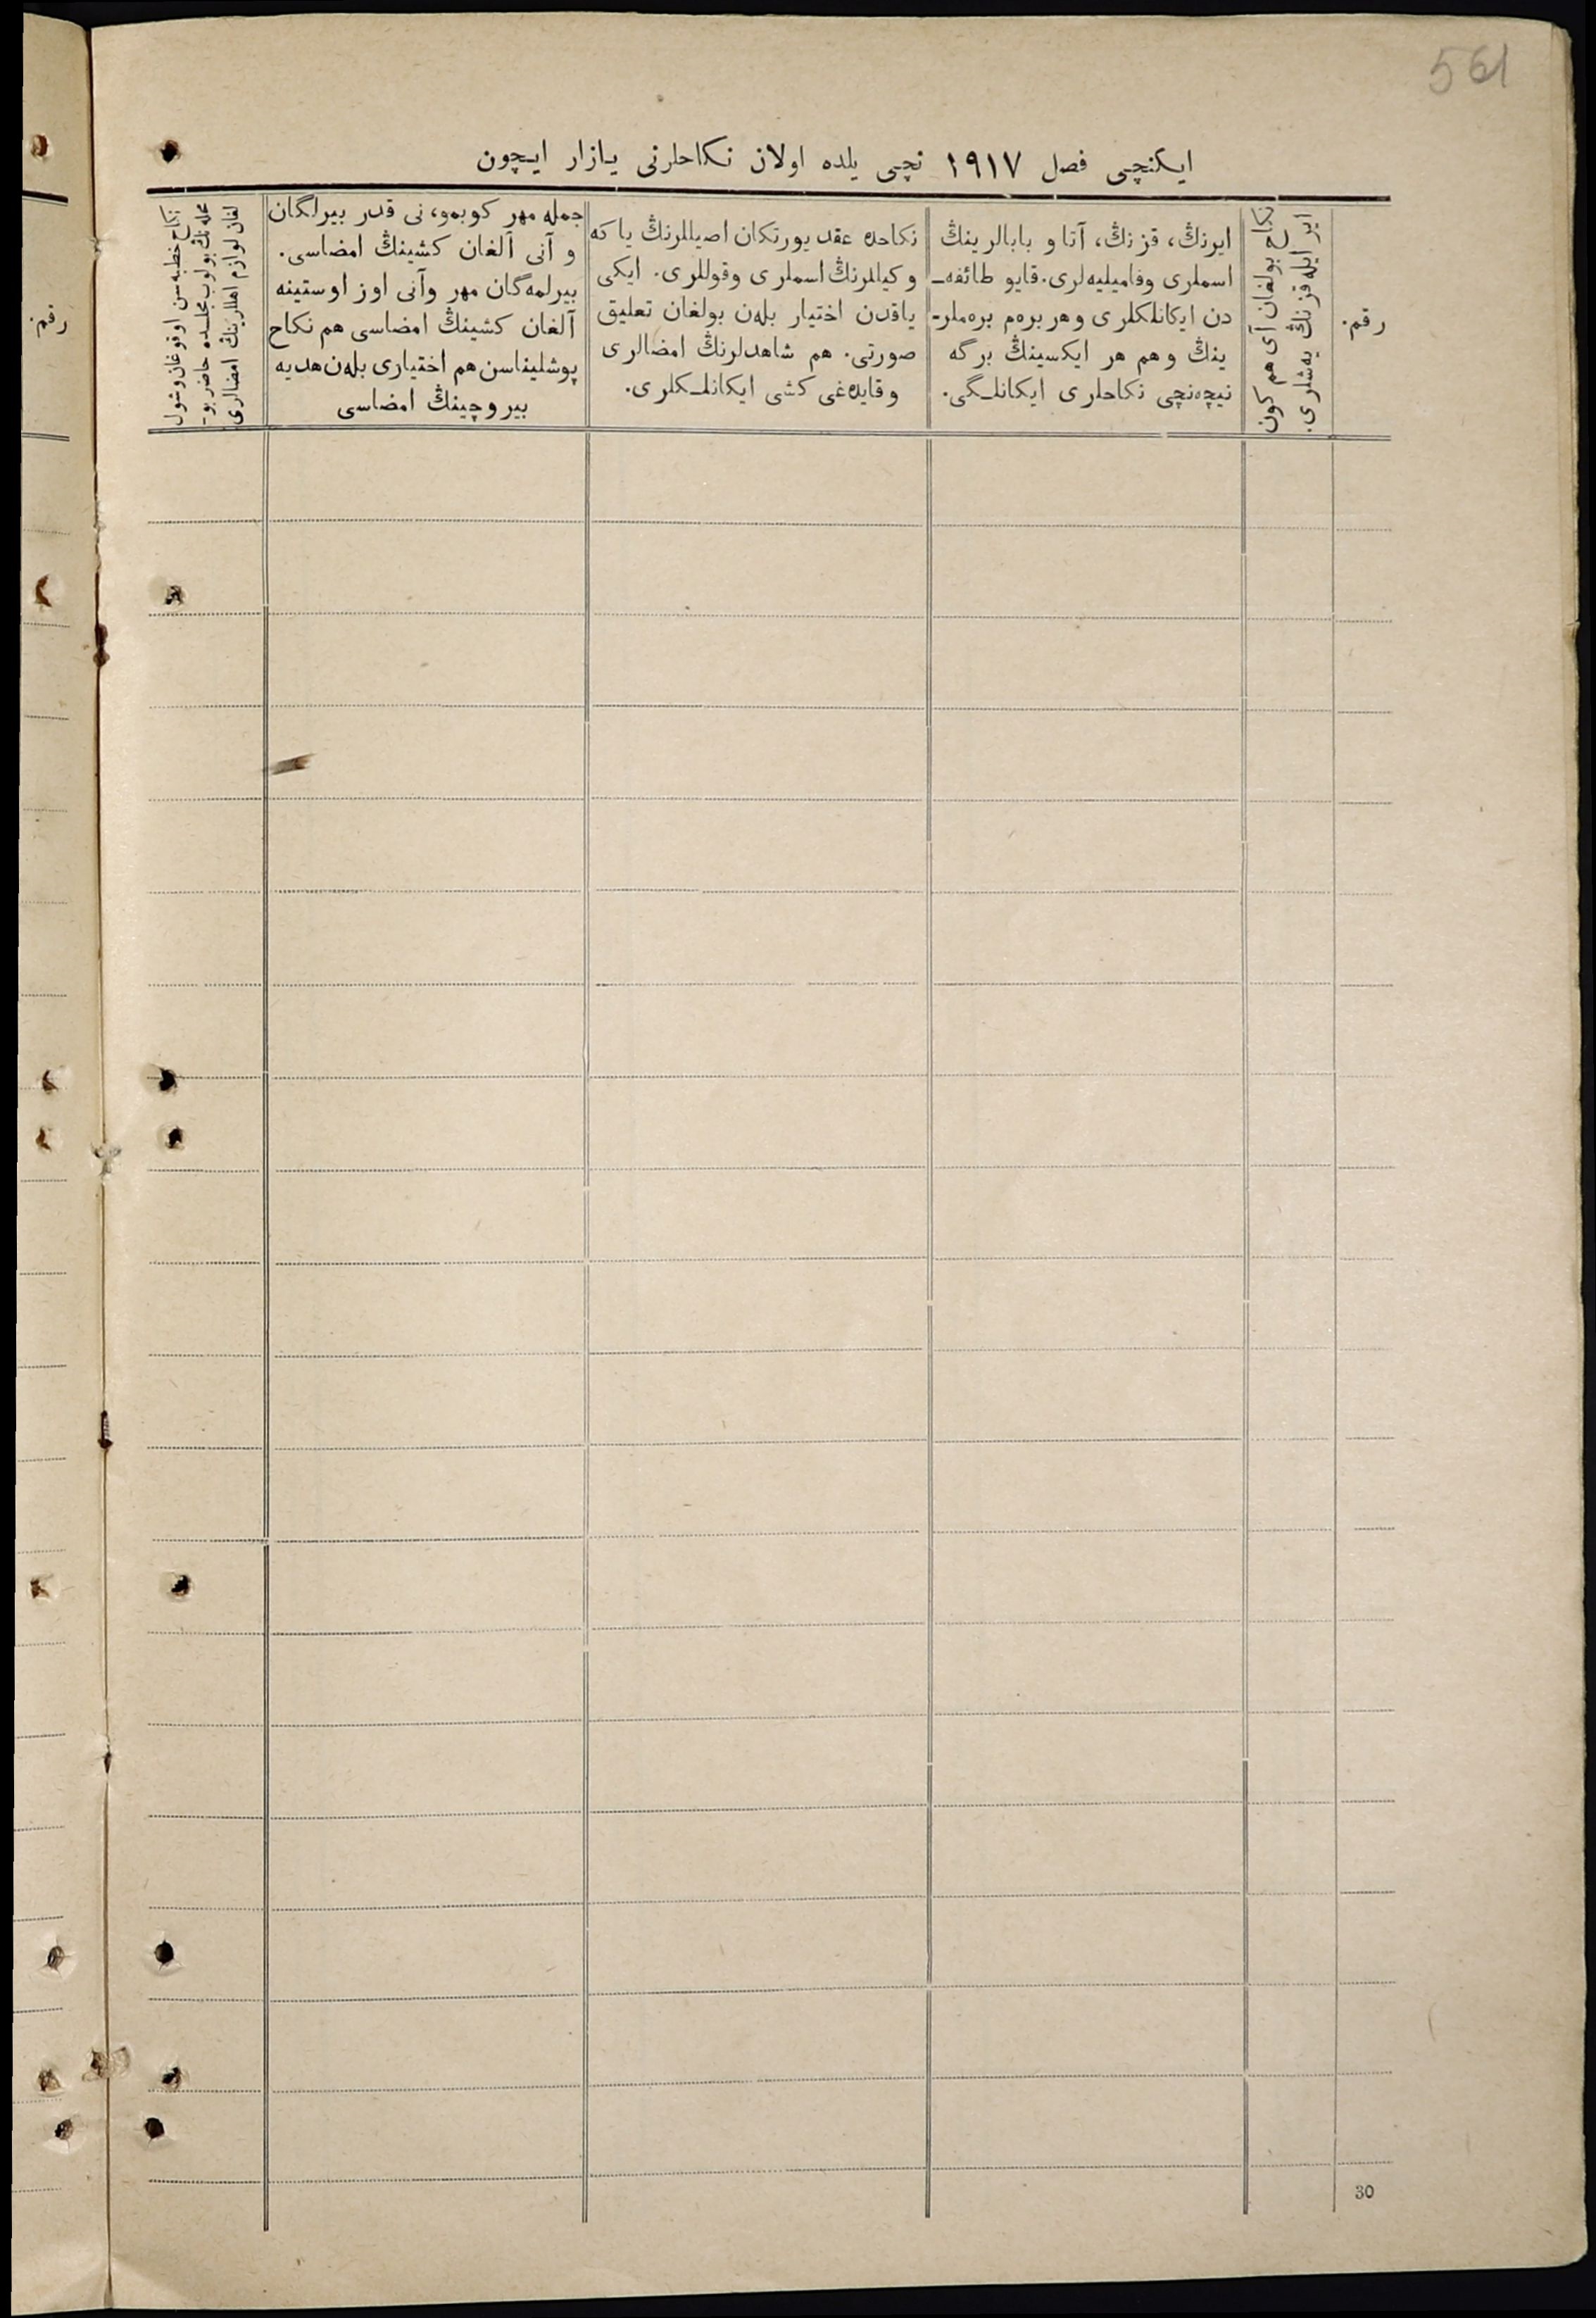 561
ایكنچی فصل ۱۹۱۷ نچی یلده اولان نكاحلرنی یازار ایچون
رقم.
ایر ایله قزنڭ یه‌شلری.
نكاح بولغان آی هم كون
ایرنڭ، قزنڭ، آتا و بابالرینڭ
اسملری وفامیلیه‌لری. قایو طائفه‌ـ
دن ایكانلكلری وهر بره‌م بره‌ملر-
ینڭ وهم هر ایكسینڭ برگه
نیچه‌نچی نكاحلری ایكانلـگی.
نكاحده عقد یورتكان اصیللرنڭ یا كه
وكیللرنڭ اسملری وقوللری. ایكی
یاقدن اختیار بله‌ن بولغان تعلیق
صورتی. هم شاهدلرنڭ امضالری
وقایده‌غی كشی ایكانلـكلری.
جمله مهر كوبمو، نی قدر بیرلگان
و آنی آلغان كشینڭ امضاسی.
بیرلمه‌گان مهر وآنی اوز اوستینه
آلغان كشینڭ امضاسی هم نكاح
پوشلیناسن هم اختیاری بله‌ن هدیه
بیروچینڭ امضاسی
نكاح خطبه‌سن اوقوغان وشول
محله‌نڭ بولوب مجلسده حاضر بو-
لغان لوازم اهللرینڭ امضالری
30
رقم.